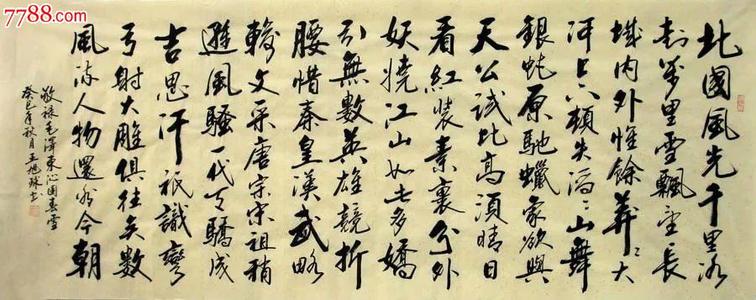 7788.com
北國風光千里冰
封萬里雪飄望長
城内外惟餘莽〻大
河上下頓失滔〻山舞
銀蛇原馳蠟象欲與
天公試比高須晴日
看紅裝素裹分外
妖嬈江山如此多嬌
引無數英雄競折
腰惜秦皇漢武略
輸文采唐宗宋祖稍
遜風騷一代天驕成
吉思汗祇識彎
弓射大雕俱往矣數
風流人物還看今朝
敬録毛澤東沁園春雪
癸巳年秋月王旭球書